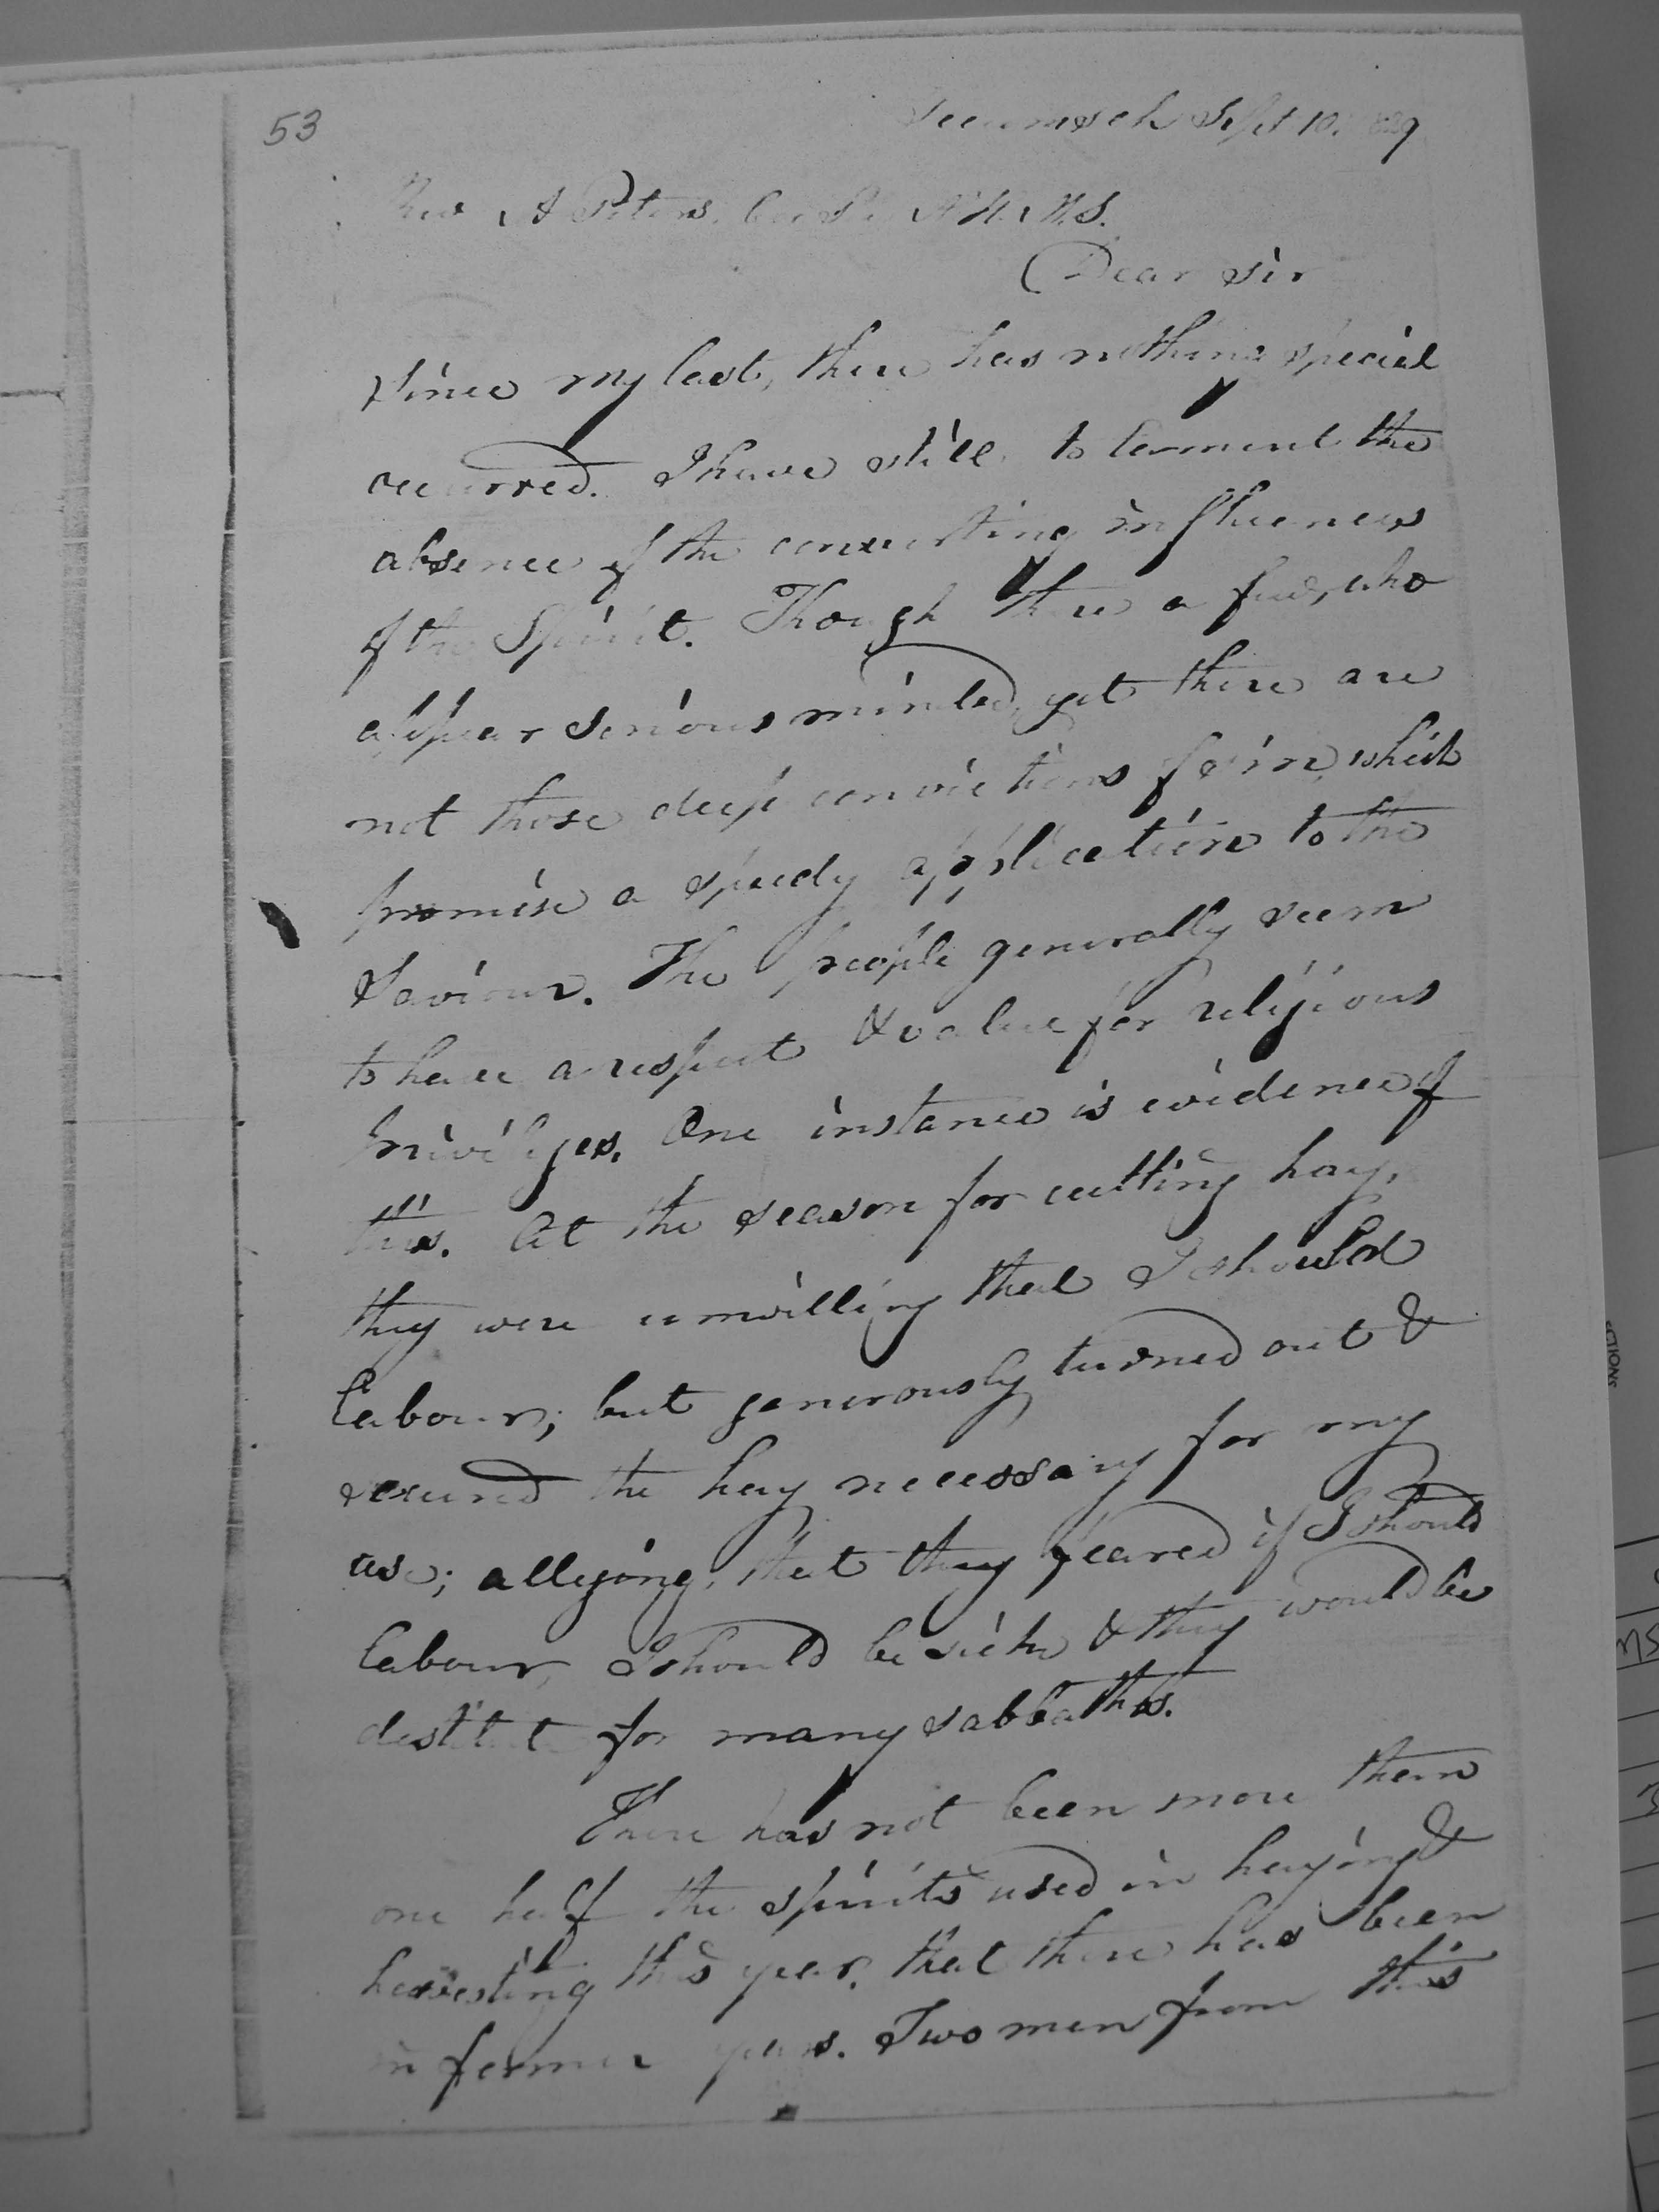 53
Tecumseh Sept 10. 1829
Rev. A Peters. Cor Se A.H.M.S.
Dear Sir
Since my last, there has nothing special
occurred. I have still to lament the
absence of the converting influences
of the Spirit. Though there a few, who
appear serious minded, yet there are
not those deep convictions of sin, which
promise a speedy application to the
Saviour. The people generally seem
to have a respect & value for religious
privileges. One instance is evidence of
this. At the season for cutting hay,
they were unwilling that I should
labour; but generously turned out &
secured the hay necessary for my
use; alleging, that they feared if I should
labour, I should be sick & they would be
destitute for many sabbaths.
There has not been more than
one half the spirits used in haying &
harvesting this year, that there has been
in former years. Two men from this
CTIONS